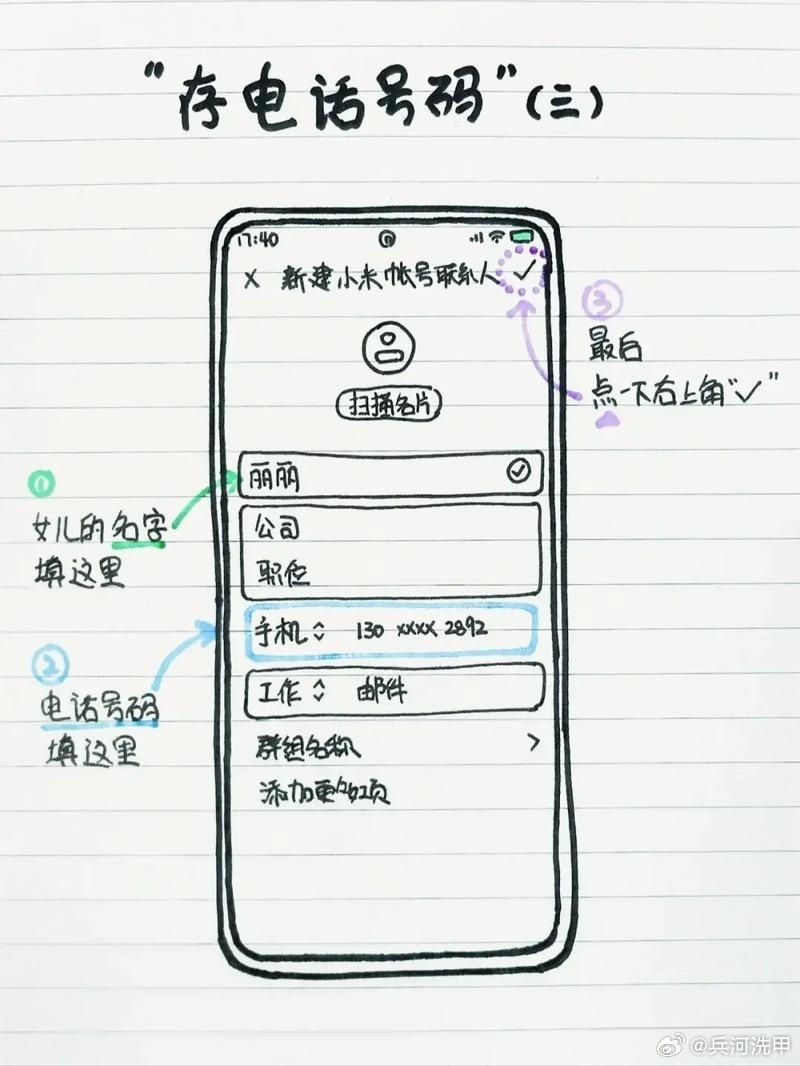 “存电话号码”(三)
17:40
X 新建小米帐号联系人 ✓
扫描名片
丽丽
公司
职位
手机 130 xxxx 2892
工作 邮件
群组名称 >
添加更多项
①
女儿的名字
填这里
②
电话号码
填这里
③
最后
点一下右上角“✓”
@兵河洗甲